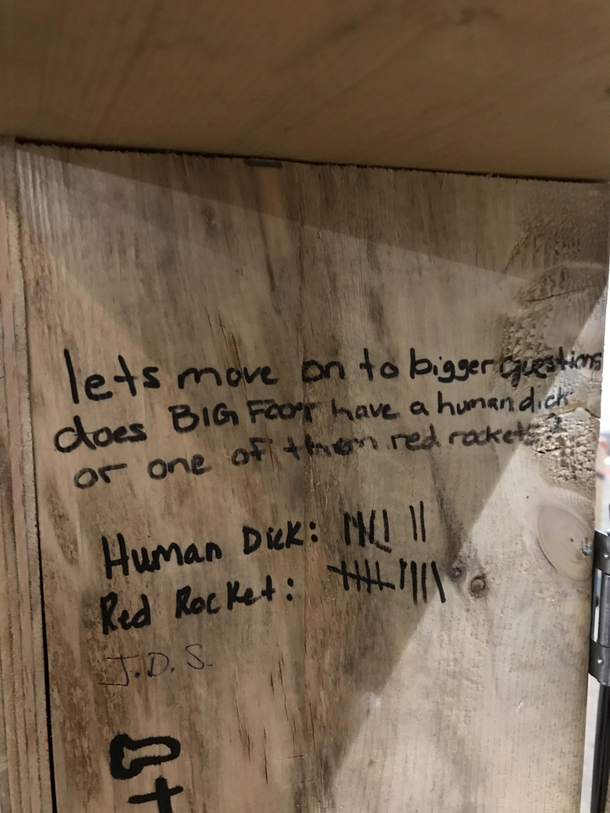 lets move on to bigger questions
does BIG FOOT have a human dick
or one of them red rockets?
Human Dick:
Red Rocket:
J.D.S.